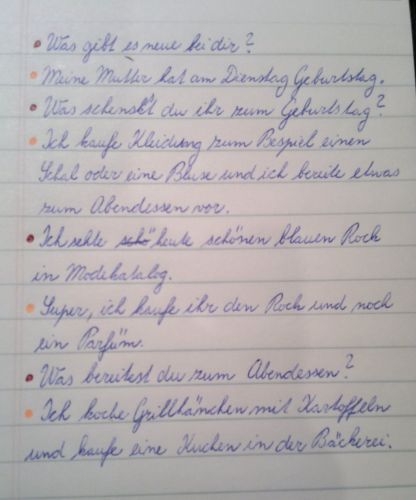 Was gibt es neue bei dir?
Meine Mutter hat am Dienstag Geburtstag.
Was schenkst du ihr zum Geburtstag?
Ich kaufe Kleidung zum Bespiel einen
Schal oder eine Bluse und ich bereite etwas
zum Abendessen vor.
Ich sehte schö heute schönen blauen Rock
in Modekatalog.
Super, ich kaufe ihr den Rock und noch
ein Parfüm.
Was bereitest du zum Abendessen?
Ich koche Grillhänchen mit Kartoffeln
und kaufe eine Kuchen in der Bäckerei.